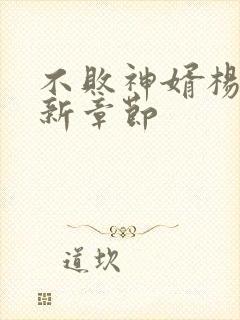 不败神婿楊
新章節
道坎